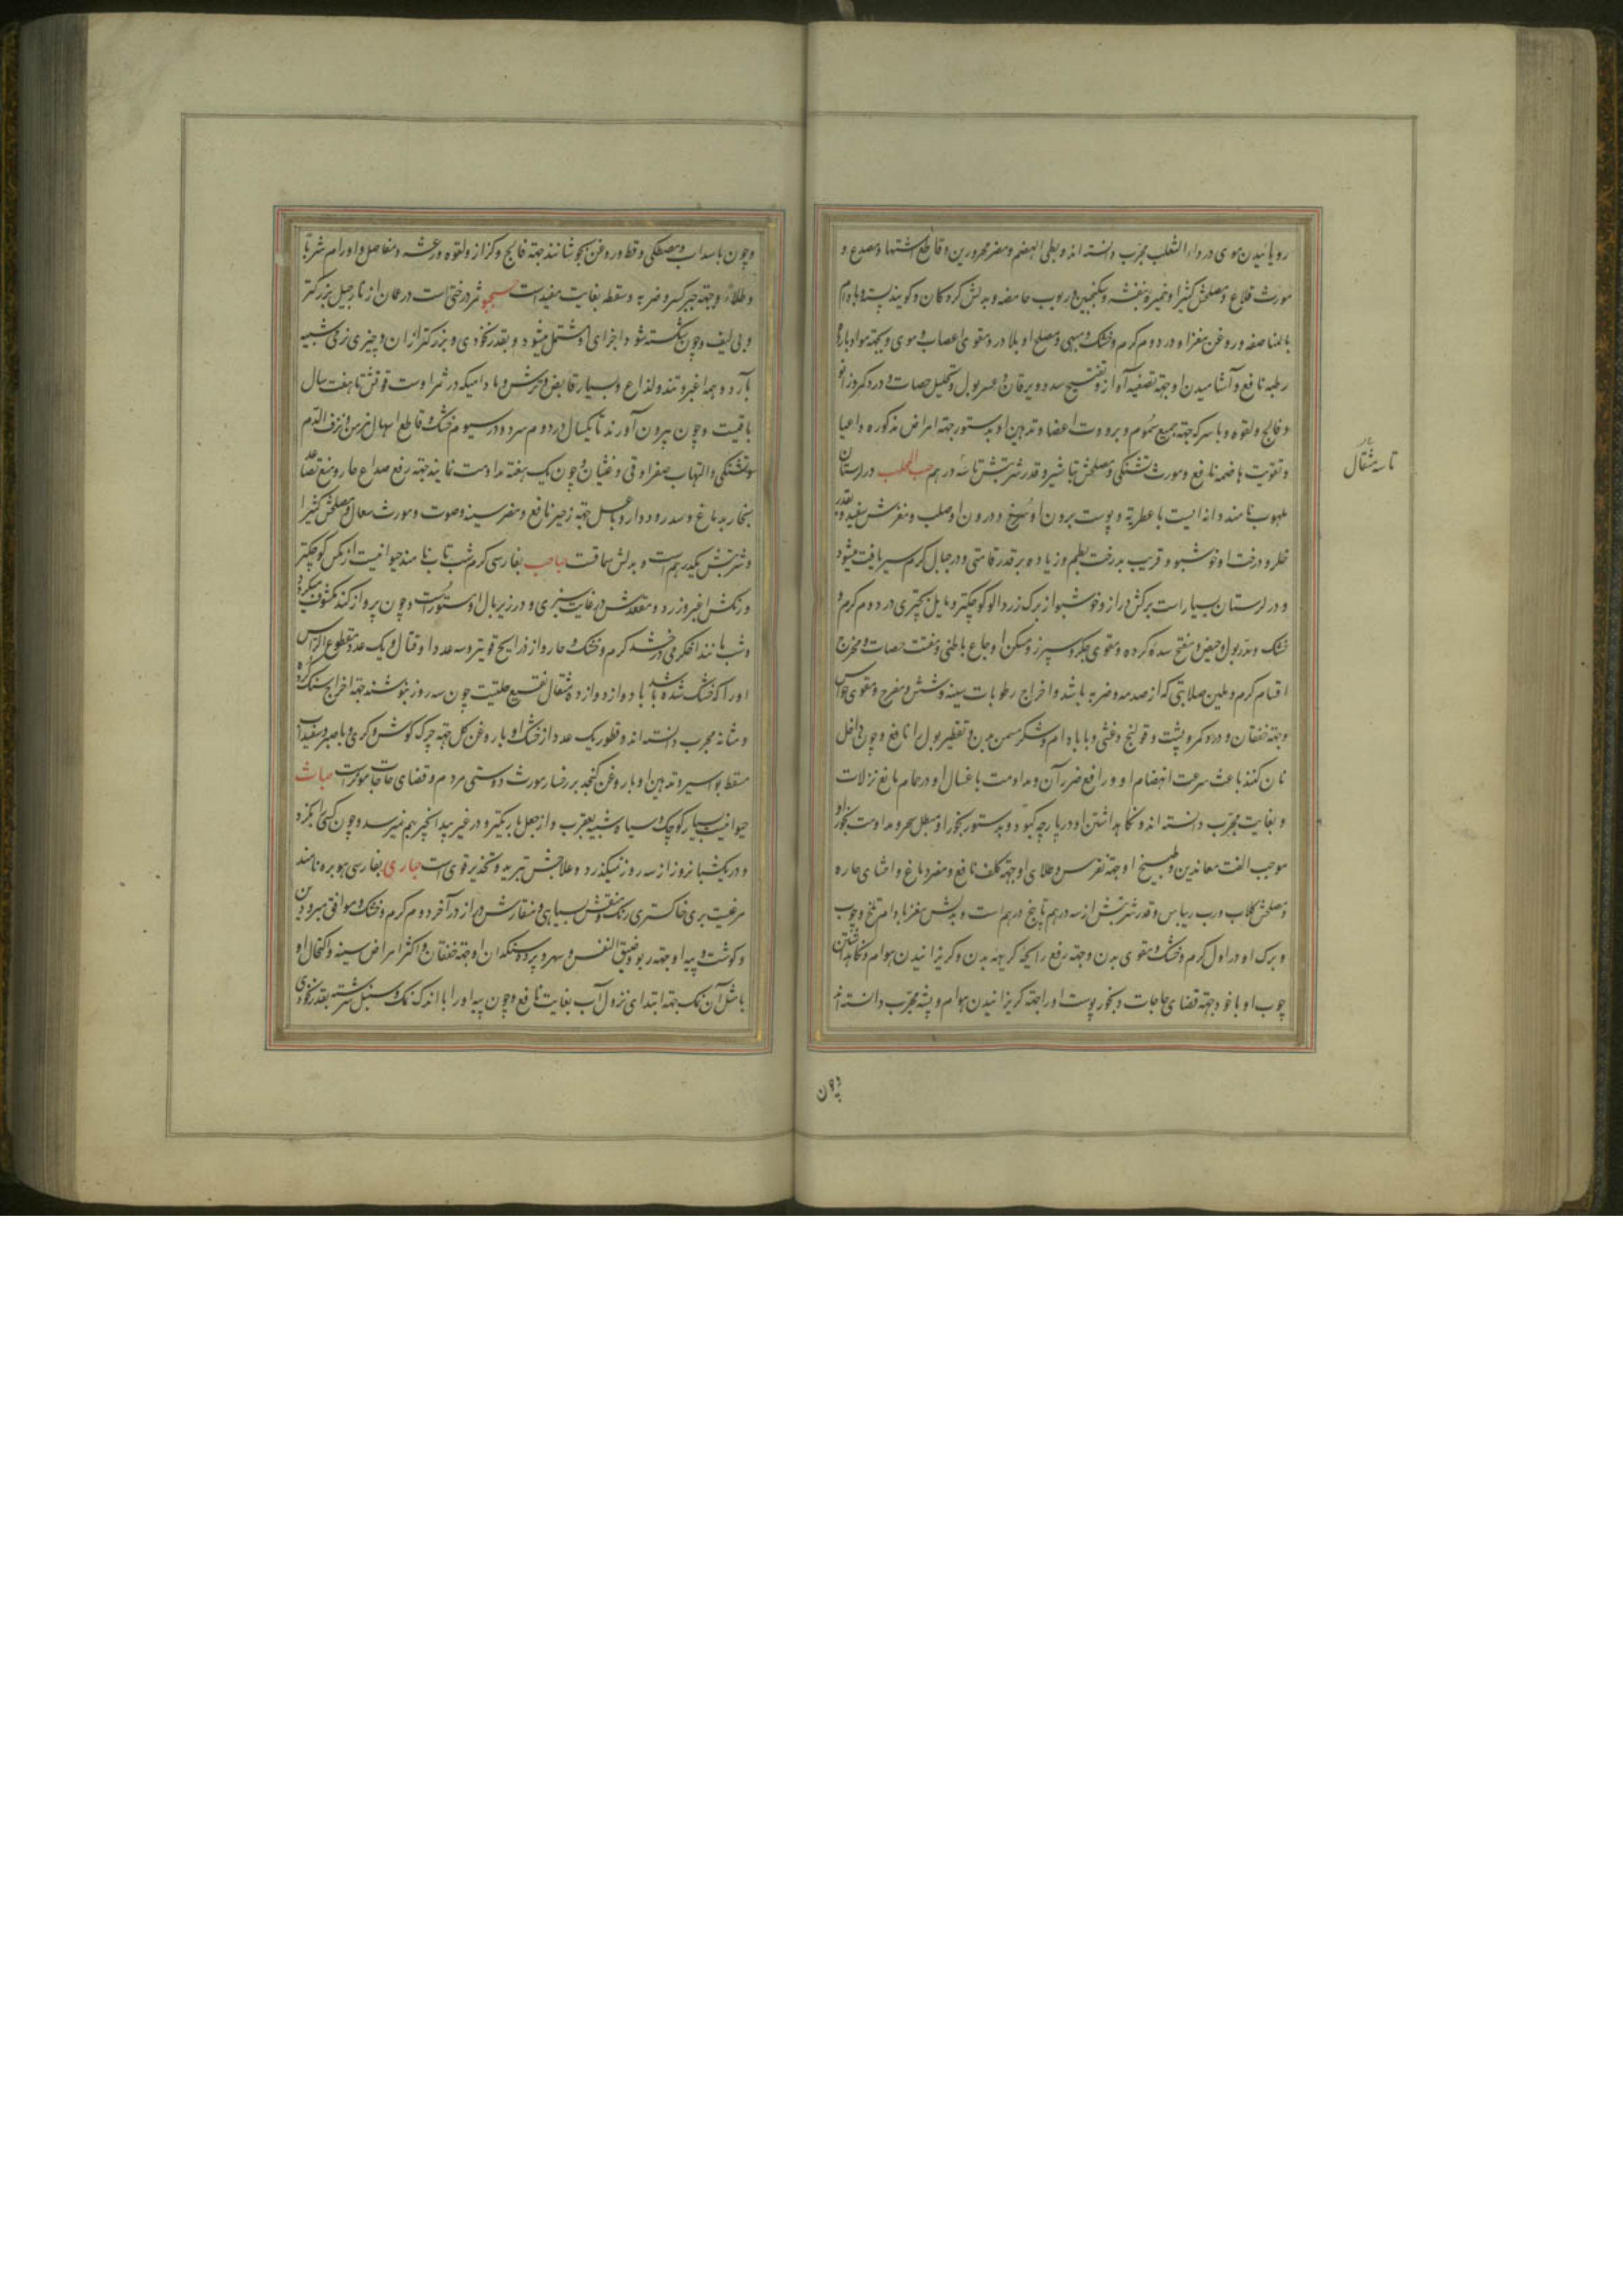 رویانیدن موی در داء الثعلب مجرب دانسته اند و بطی الهضم و مضر محرورین و قاطع اشتها و مصدع و
مورث قلاع و مصلحش کثیرا و خمیره بنفشه و سکنجبین و ربوب حامضه و بدلش کردکان و کویند پسته و بادام
بالمناصفه و روغن مغز او در دوم کرم و خشک و مبهی و مصلح او بلادر و مقوی اعصاب و موی و جهته مواد بارده
رطبه نافع و آشامیدن او جهته تصفیه آواز و تفتیح سدد و یرقان و عسر بول و تحلیل حصات و درد کمر و زانو
و فالج و لقوه و با سرکه جهته جمیع سموم و برودت اعضا و تدهین او بدستور جهته امراض مذکوره و اعیا
و تقویت هاضمه نافع و مورث تشنکی و مصلحش تباشیر و قدر شربتش تا سه درهم حب المحلب در لرستان
ملهوب نامند دانه ایست با عطریة و پوست برون او سرخ و درون او صلب و مغزش سفید و بقدر
خلر و درخت او خوشبو و قریب بدرخت بطم و زیاده بر قدر قامتی و در جبال کرم سیر یافت میشود
و در لرستان بسیار است برکش دراز و خوشبو از برک زردالو کوچکتر و مایل بچتری در دوم کرم و
خشک و مدر بول و حیض و مفتح سده کرده و مقوی جکر و سپرز و مسکن اوجاع باطنی و مفتت حصات و مخرج
اقسام کرم و ملین صلابتی که از صدمه و ضربه باشد و اخراج رطوبات سینه و شش و مفرح و مقوی حواس
و جهته خفقان و درد کمر و پشت و قولنج و غشی و با بادام و شکر مسمن بدن و تقطیر بول را نافع و چون داخل
نان کنند باعث سرعت انهضام او و رافع ضرر آن و مداومت باغسال او در حمام مانع نزلات
و بغایت مجرب دانسته اند و نکاهداشتن او در پارچه کبود و بدستور بخور او مبطل سحر و مداومت بخور او
موجب الفت معاندین و طبیخ او جهته نقرس و طلای او جهته کلف نافع و مضر دماغ و احشای حاره
و مصلحش کلاب و رب ریباس و قدر شربتش از سه درهم تا پنج درهم است و بدلش مغز بادام تلخ و چوب
و برک او در اول کرم و خشک و مقوی بدن و جهته رفع رایحه کریهه بدن و کریزانیدن هوام و نکاهداشتن
چوب او با خود جهته قضای حاجات و بخور پوست او را جهته کریزانیدن هوام و پشه مجرب دانسته اند
تا سه مثقال
و چون با سداب و مصطکی و قطور و روغن بجوشانند جهته فالج و کزاز و لقوه و رعشه و مفاصل و اورام شربا
و طلاء و جهته جبر کسر و ضربه و سقطه بغایت مفید است ثمر درختی است در عمان از نارجیل بزرکتر
و بی لیف و چون شکسته شود اجزای او مشتمل میشود و بقدر نخودی و بزرکتر از ان و چیزی زردی شبیه
بآرد و همه اغبر و تند و لذاع و بسیار قابض و ترش و مادامیکه در ثمر اوست قوتش تا هفت سال
باقیست و چون بیرون آورند تا یکسال در دوم سرد و در سیوم خشک و قاطع اسهال مزمن و نزف الدم
و تشنکی و التهاب صفرا و قی و غثیان و چون یک هفته مداومت نمایند جهته رفع صداع حار و منع تصاعد
بخار بدماغ و سدر و دوار و با عسل جهته زحیر نافع و مضر سینه و صوت و مورث سعال و مصلحش کثیرا
و شربتش یکدرهم است و بدلش سماقست حباحب بفارسی کرم شب تاب نامند حیوانیست از مکس کوچکتر
و رنکش اغبر و زرد و مقعدش در غایت سبزی و در زیر بال او مستور است و چون پرواز کند مکشوف میکردد
و شب مانند اخکر می درخشد کرم و خشک و حار و از ذراریح قویتر و سه عدد او قتال و یک عدد مقطوع الراس
او را که خشک شده باشد با دوازده مثقال نقیع حلتیت چون سه روز بنوشند جهته اخراج سنک کرده
و مثانه مجرب دانسته اند و قطور یک عدد از خشک او با روغن کل جهته چرک کوش و کری و با صبر و سفیداب
مسقط بواسیر و تدهین او با روغن کنجد بر رخسار مورث دوستی مردم و قضای حاجات مؤثر است حباث
حیوانیست بسیار کوچک و سیاه و شبیه بعقرب و از جعل باریکتر و در غیر بید انجیر بهم نمیرسد و چون کسی را بکزد
و در یکشبانروز از سه روز نمیکذرد و علاجش تبرید و تخدیر قوی است حباری بفارسی هوبره نامند
مرغیست بری خاکستری رنک و منقش بسیاهی و منقارش دراز در آخر دوم کرم و خشک و موافق مبرودین
و کوشت و پیه او جهته ربو و ضیق النفس و سهر و پرده سنکدان او جهته خفقان و اکثر امراض سینه و اکتحال او
با مثل آن نمک جهته ابتدای نزول آب بغایت نافع و چون پیه او را با اندک نمک و سنبل سرشته بقدر نخودی